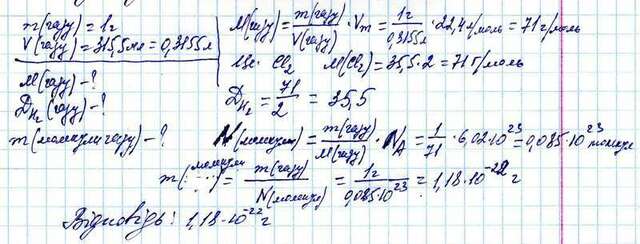 m(газу) = 1г
V(газу) = 315,5мл = 0,3155л
M(газу) - ?
D_H₂(газу) - ?
m(молекули газу) - ?
M(газу) = m(газу)/V(газу) · Vm = 1г/0,3155л · 22,4л/моль = 71 г/моль
Це Cl₂ M(Cl₂) = 35,5·2 = 71 г/моль
D_H₂ = 71/2 = 35,5
N(молекул) = m(газу)/M(газу) · N_A = 1/71 · 6,02·10²³ = 0,085·10²³ молекул
m(молекули) = m(газу)/N(молекул) = 1г/0,085·10²³ = 1,18·10⁻²² г
Відповідь: 1,18·10⁻²² г